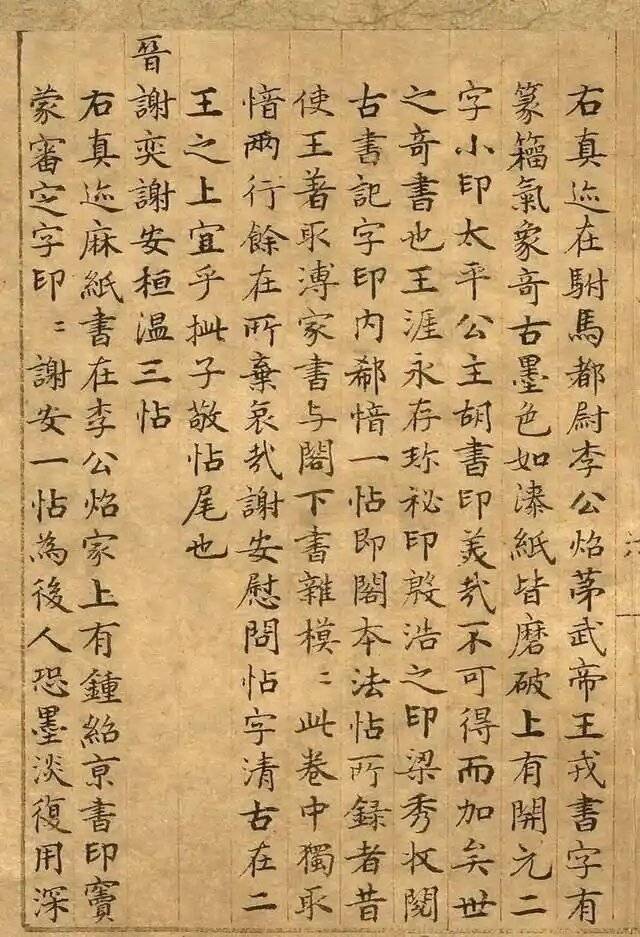 右真迹在駙馬都尉李公炤第武帝王戎書字有
篆籒氣象奇古墨色如漆紙皆磨破上有開元二
字小印太平公主胡書印美哉不可得而加矣世
之奇書也王涯永存珎祕印殷浩之印梁秀收閱
古書記字印内郗愔一帖即閣本法帖所錄者昔
使王著取溥家書与閣下書雜模〻此卷中獨取
愔兩行餘在所棄哀㢤謝安慰問帖字清古在二
王之上宜乎批子敬帖尾也
晉謝奕謝安桓温三帖
右真迹麻紙書在李公炤家上有鍾紹京書印竇
蒙審定字印〻謝安一帖為後人恐墨淡復用深